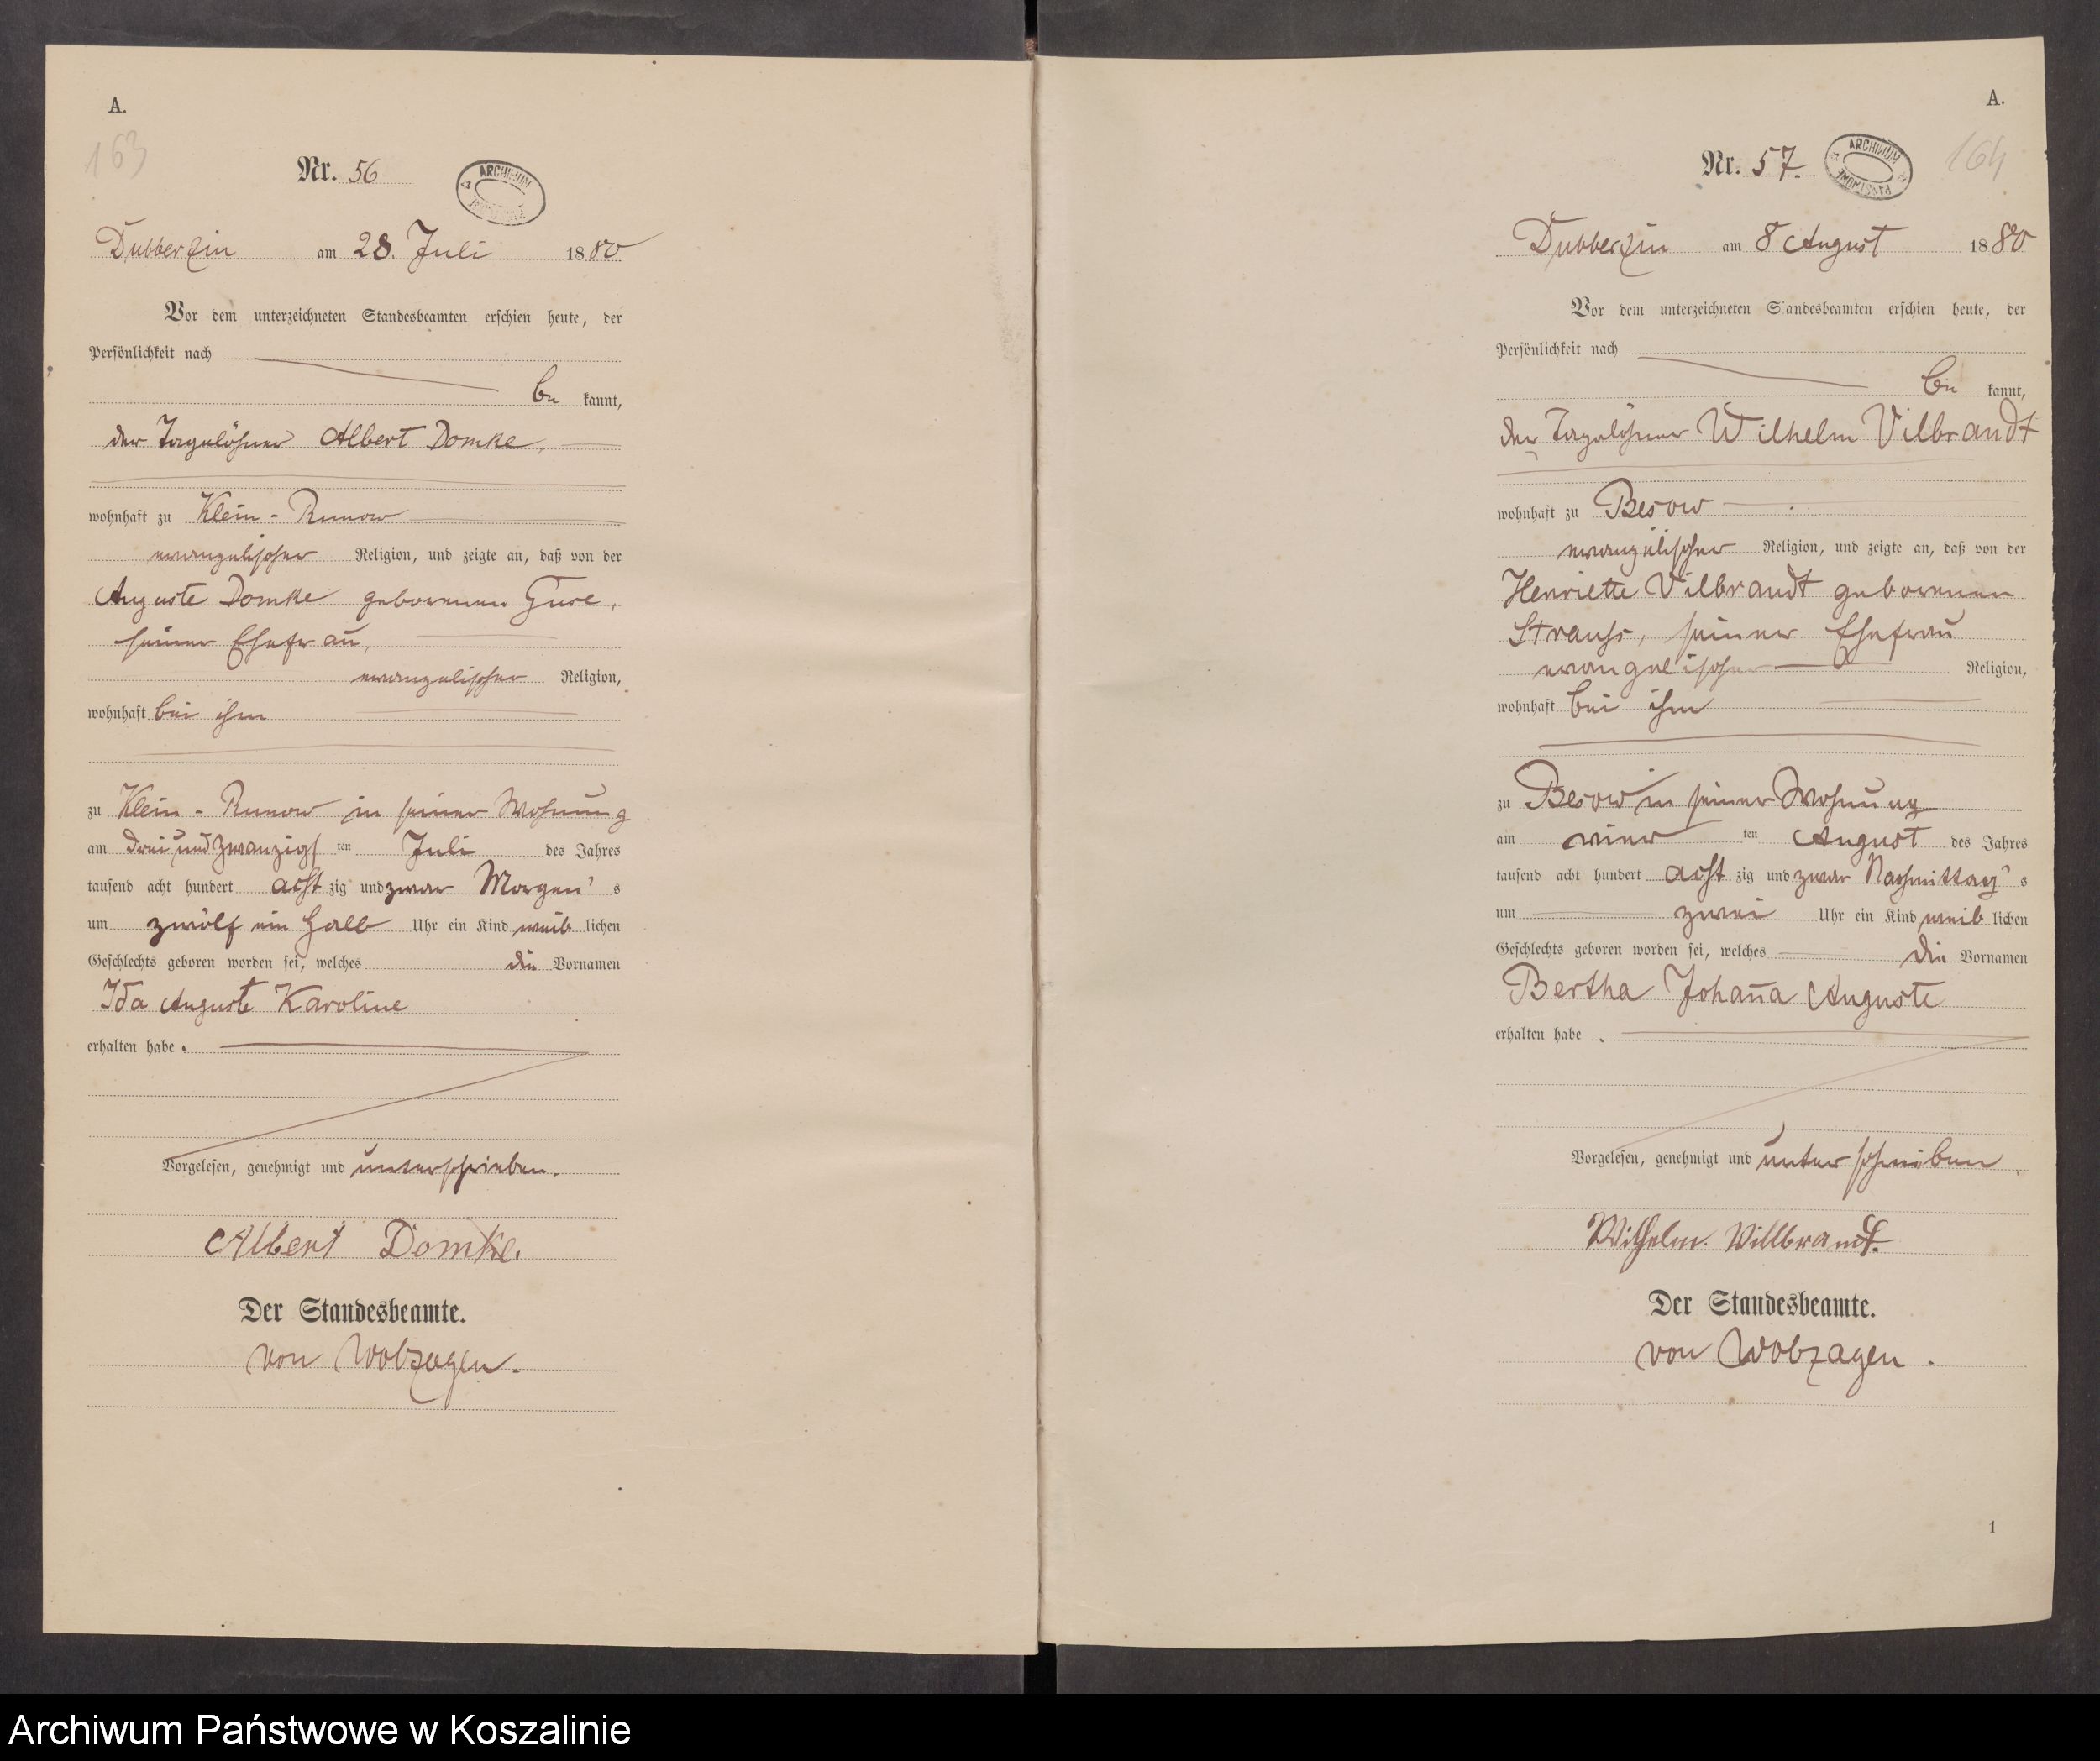 A.
163
Nr. 56
ARCHIWUM
Dubberzin am 28. Juli 1880
Vor dem unterzeichneten Standesbeamten erschien heute, der
Persönlichkeit nach
be kannt,
der Tagelöhner Albert Domke,
wohnhaft zu Klein-Runow
evangelischer Religion, und zeigte an, daß von der
Auguste Domke geborenen Guse,
seiner Ehefrau,
evangelischer Religion,
wohnhaft bei ihm
zu Klein-Runow in seiner Wohnung
am drei und zwanzigsten Juli des Jahres
tausend acht hundert achtzig und zwar Morgen's
um zwölf ein halb Uhr ein Kind weiblichen
Geschlechts geboren worden sei, welches die Vornamen
Ida Auguste Karoline
erhalten habe.
Vorgelesen, genehmigt und unterschrieben.
Albert Domke.
Der Standesbeamte.
von Wobzagen.
A.
164
Nr. 57.
ARCHIWUM PAŃSTWOWE
Dubberzin am 8 August 1880
Vor dem unterzeichneten Standesbeamten erschien heute, der
Persönlichkeit nach
be kannt,
der Tagelöhner Wilhelm Vilbrandt
wohnhaft zu Besow
evangelischer Religion, und zeigte an, daß von der
Henriette Vilbrandt geborenen
Strauhs, seiner Ehefrau
evangelischer Religion,
wohnhaft bei ihm
zu Besow in seiner Wohnung
am vierten August des Jahres
tausend acht hundert achtzig und zwar Nachmittag's
um zwei Uhr ein Kind weiblichen
Geschlechts geboren worden sei, welches die Vornamen
Bertha Johan̄a Auguste
erhalten habe.
Vorgelesen, genehmigt und unterschrieben.
Wilhelm. Villbrandt.
Der Standesbeamte.
von Wobzagen.
1
Archiwum Państwowe w Koszalinie